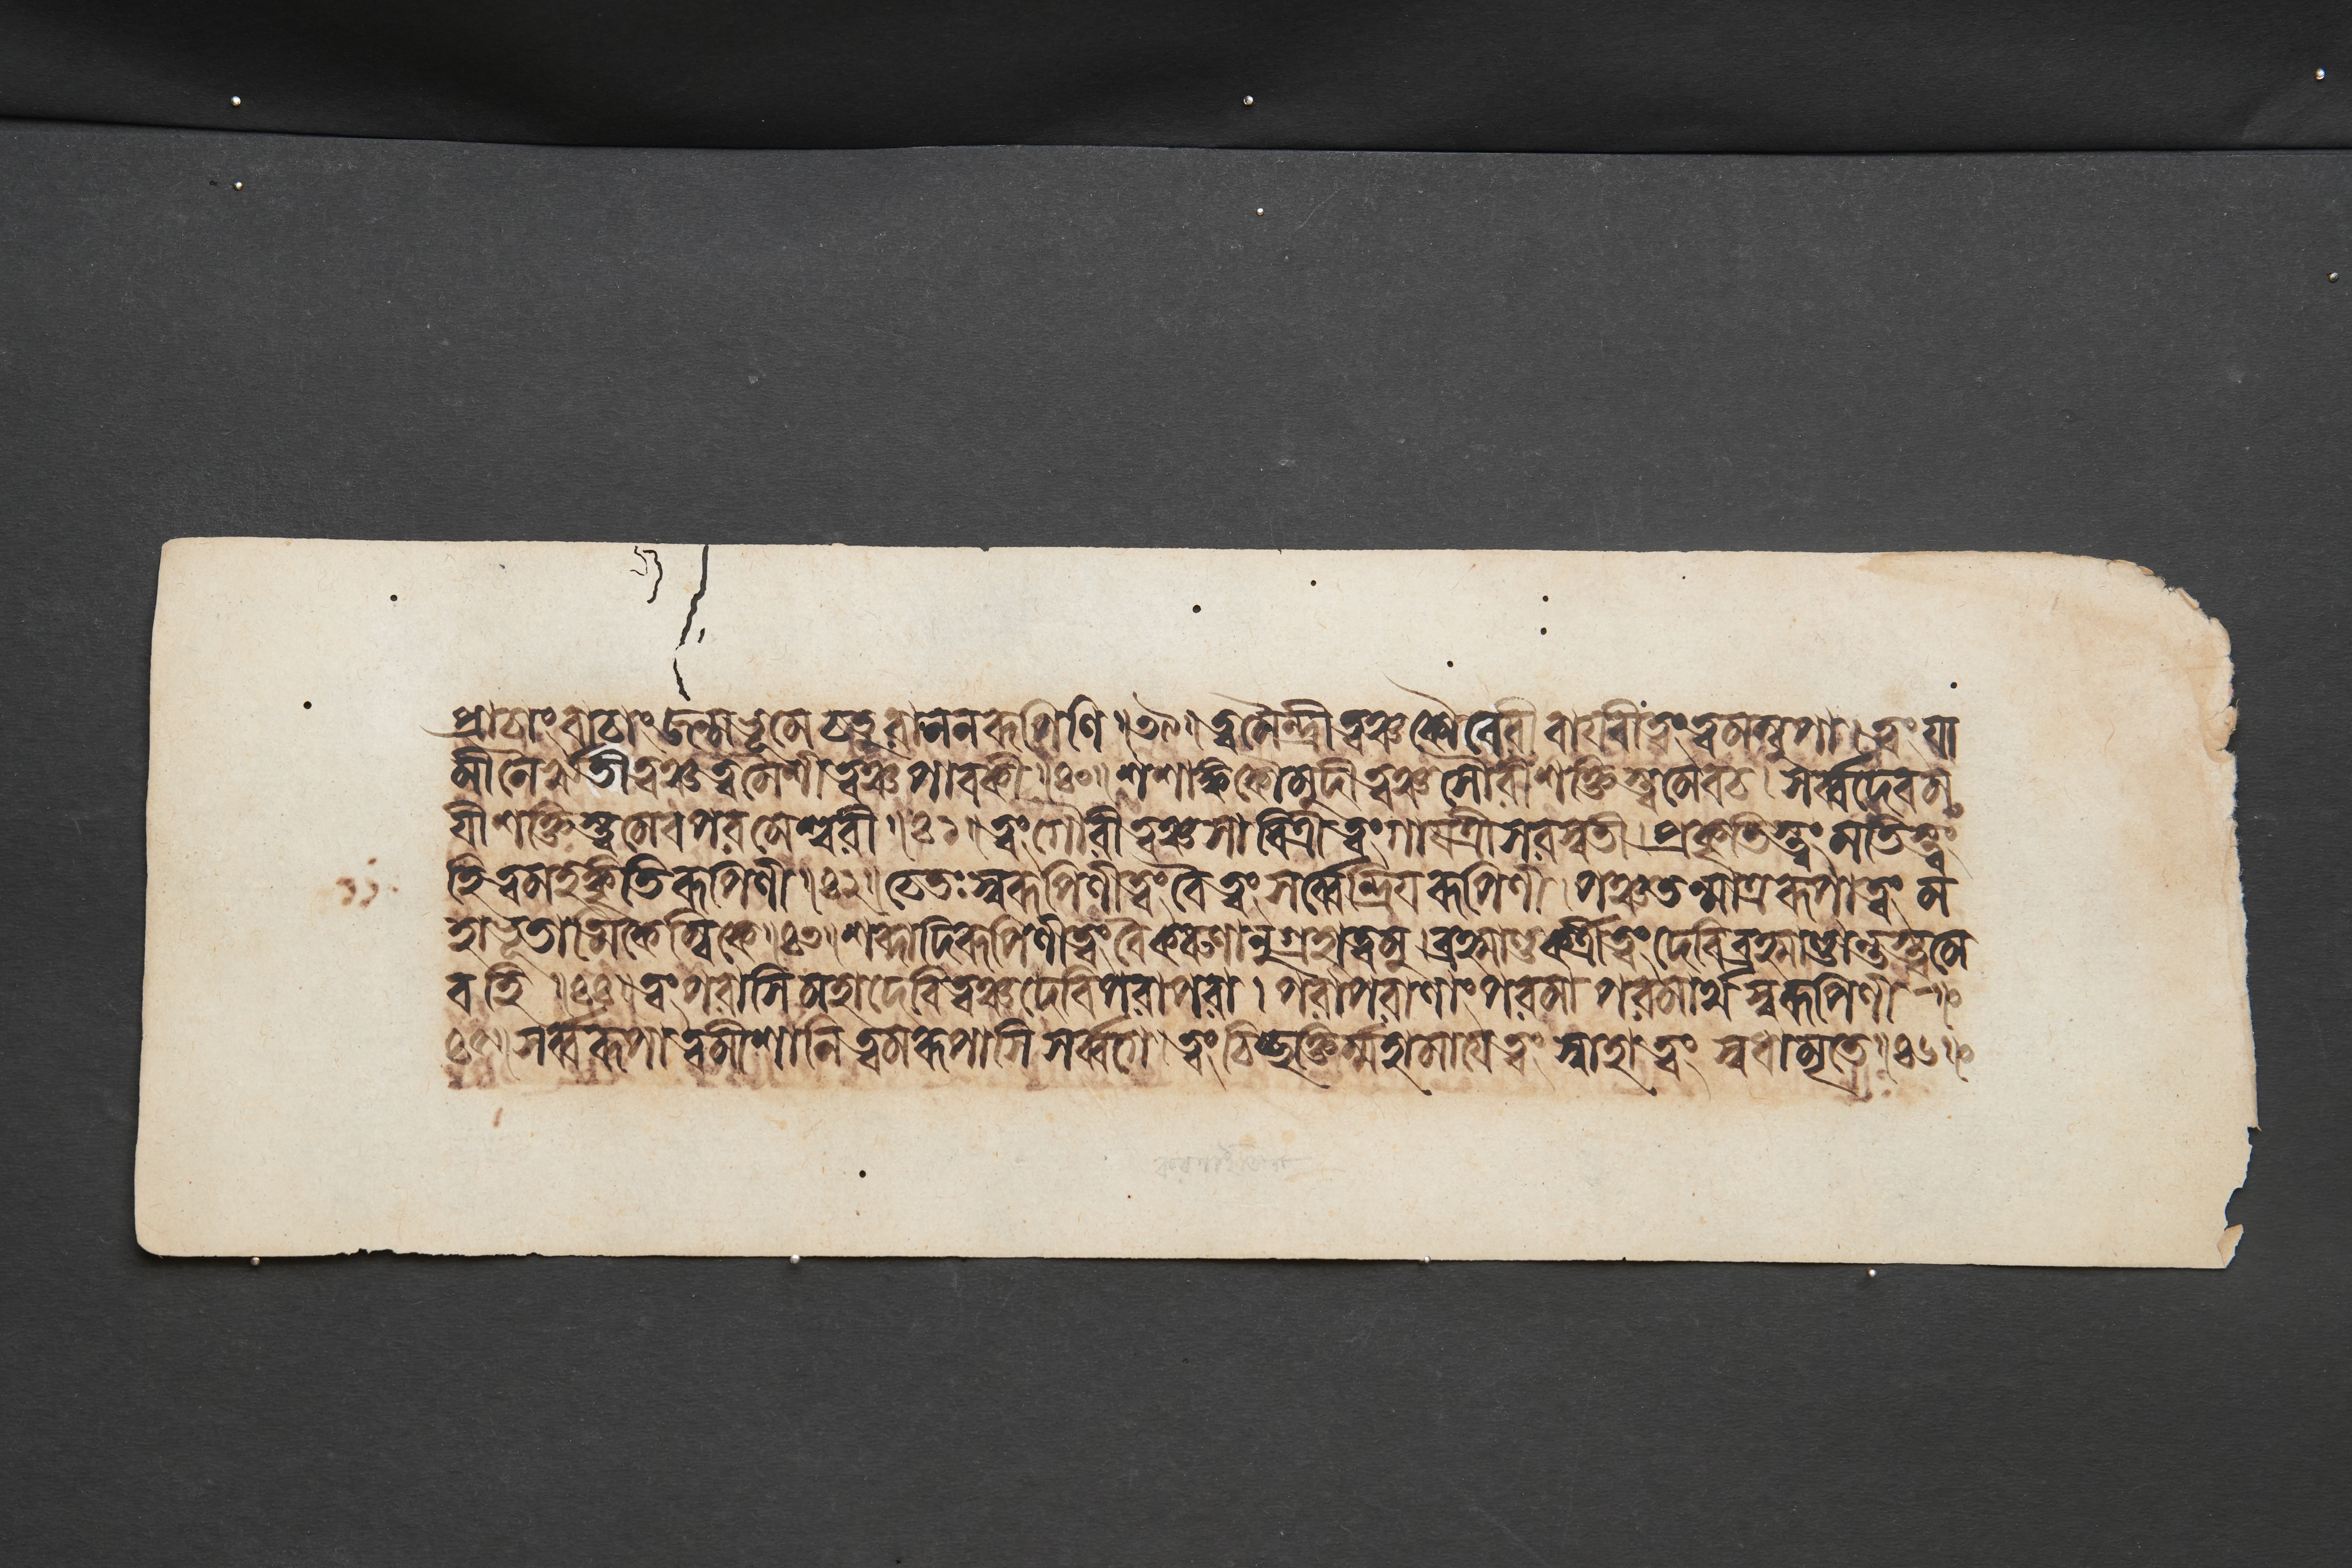 প্রাচাংবাচাং জন্মভূমে চতুরাননরূপিণি ॥৩৯॥ ত্বমৈন্দ্রী ত্বঞ্চ কৌবেরী বায়বী ত্বং ত্বমম্বুপা। ত্বং যা
মী নৈরৃতী ত্বঞ্চ ত্বমৈশী ত্বঞ্চ পাবকী ॥৪০॥ শশাঙ্ককৌমুদী ত্বঞ্চ সৌরী শক্তিস্ত্বমেব চ। সর্ব্বদেবম
য়ী শক্তিস্ত্বমেব পরমেশ্বরী ॥৪১॥ ত্বং গৌরী ত্বঞ্চ সাবিত্রী ত্বং গায়ত্রী সরস্বতী। প্রকৃতিস্ত্বং মতিস্ত্বং
হি ত্বমহঙ্কৃতিরূপিণী ॥৪২॥ চেতঃস্বরূপিণী ত্বং বৈ ত্বং সর্ব্বেন্দ্রিয়রূপিণী। পঞ্চতন্মাত্ররূপা ত্বং ম
হাভূতাত্মিকেম্বিকে ॥৪৩॥ শব্দাদিরূপিণী ত্বং বৈ করণানুগ্রহা ত্বমু। ব্রহ্মাণ্ডকর্ত্রী ত্বং দেবি ব্রহ্মাণ্ডান্তস্ত্বমে
ব হি ॥৪৪॥ ত্বং পরাসি মহাদেবি ত্বঞ্চ দেবি পরাপরা। পরাপরাণাং পরমা পরমার্থস্বরূপিণী
৪৫॥ সর্ব্বরূপা ত্বমীশানি ত্বমরূপাসি সর্ব্বগে। ত্বং চিচ্ছক্তির্ম্মহামায়ে ত্বং স্বাহা ত্বং স্বধামৃতে ॥৪৬॥